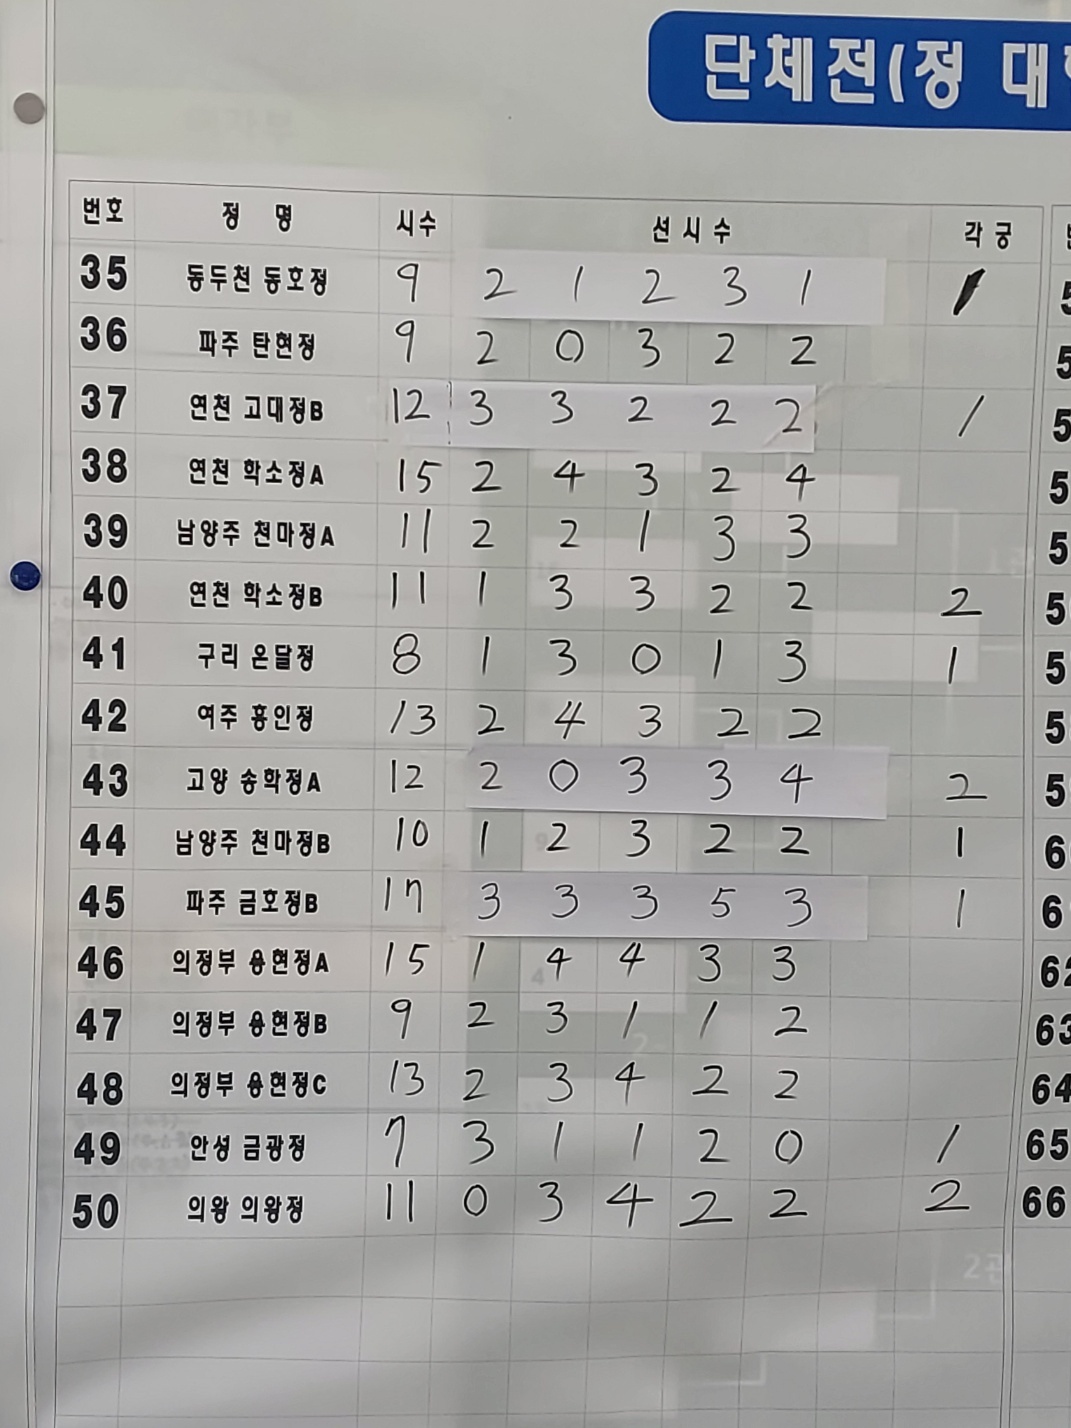 단체전(정 대
번호 정 명 시수 선시수 각궁
35 동두천 동호정 9 2 1 2 3 1 1
36 파주 탄현정 9 2 0 3 2 2
37 연천 고대정B 12 3 3 2 2 2 1
38 연천 학소정A 15 2 4 3 2 4
39 남양주 천마정A 11 2 2 1 3 3
40 연천 학소정B 11 1 3 3 2 2 2
41 구리 온달정 8 1 3 0 1 3 1
42 여주 흥인정 13 2 4 3 2 2
43 고양 송학정A 12 2 0 3 3 4 2
44 남양주 천마정B 10 1 2 3 2 2 1
45 파주 금호정B 17 3 3 3 5 3 1
46 의정부 용현정A 15 1 4 4 3 3
47 의정부 용현정B 9 2 3 1 1 2 63
48 의정부 용현정C 13 2 3 4 2 2 64
49 안성 금광정 7 3 1 1 2 0 1 65
50 의왕 의왕정 11 0 3 4 2 2 2 66